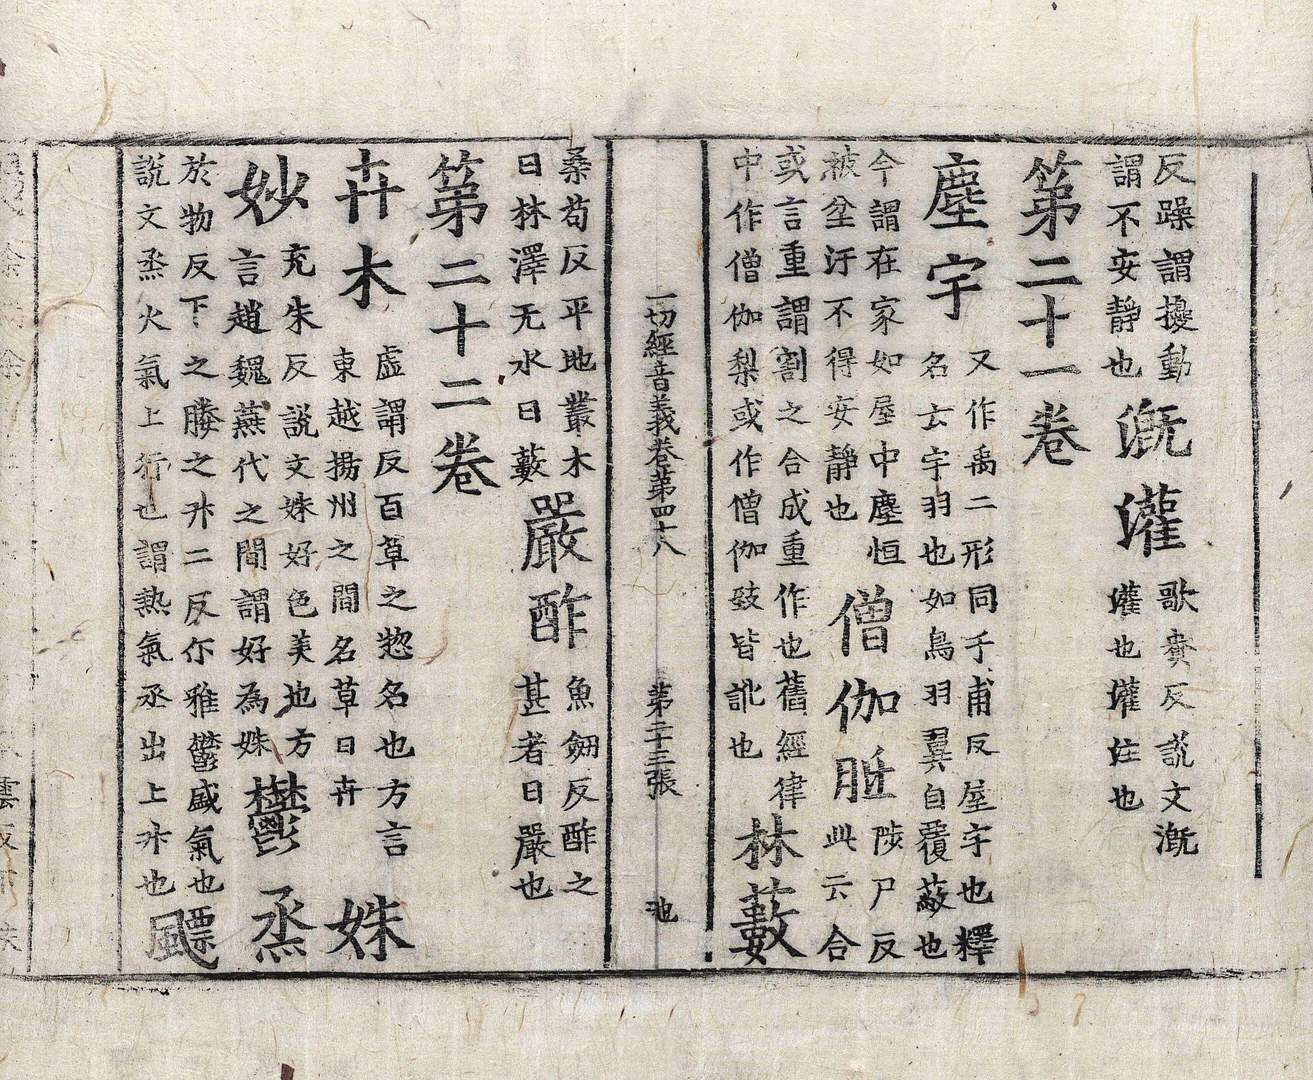 反躁謂擾動
謂不安靜也
溉灌
歌賚反說文溉
灌也灌注也
第二十一卷
塵宇
又作㝢二形同于甫反屋宇也釋
名云宇羽也如鳥羽翼自覆蔽也
今謂在家如屋中塵恒
被坌汙不得安靜也
僧伽胝
陟尸反
此云合
或言重謂割之合成重作也舊經律
中作僧伽梨或作僧伽致皆訛也
林藪
一切經音義卷第四十八 第二十三張 池
桑苟反平地叢木
曰林澤无水曰藪
嚴酢
魚劒反酢之
甚者曰嚴也
第二十二卷
卉木
虛謂反百草之惣名也方言
東越揚州之間名草曰卉
姝
充朱反說文姝好色美也方
言趙魏燕代之間謂好為姝
妙
鬱烝
於物反下之媵之升二反尒雅鬱盛氣也
說文烝火氣上行也謂熱氣烝出上升也
飄